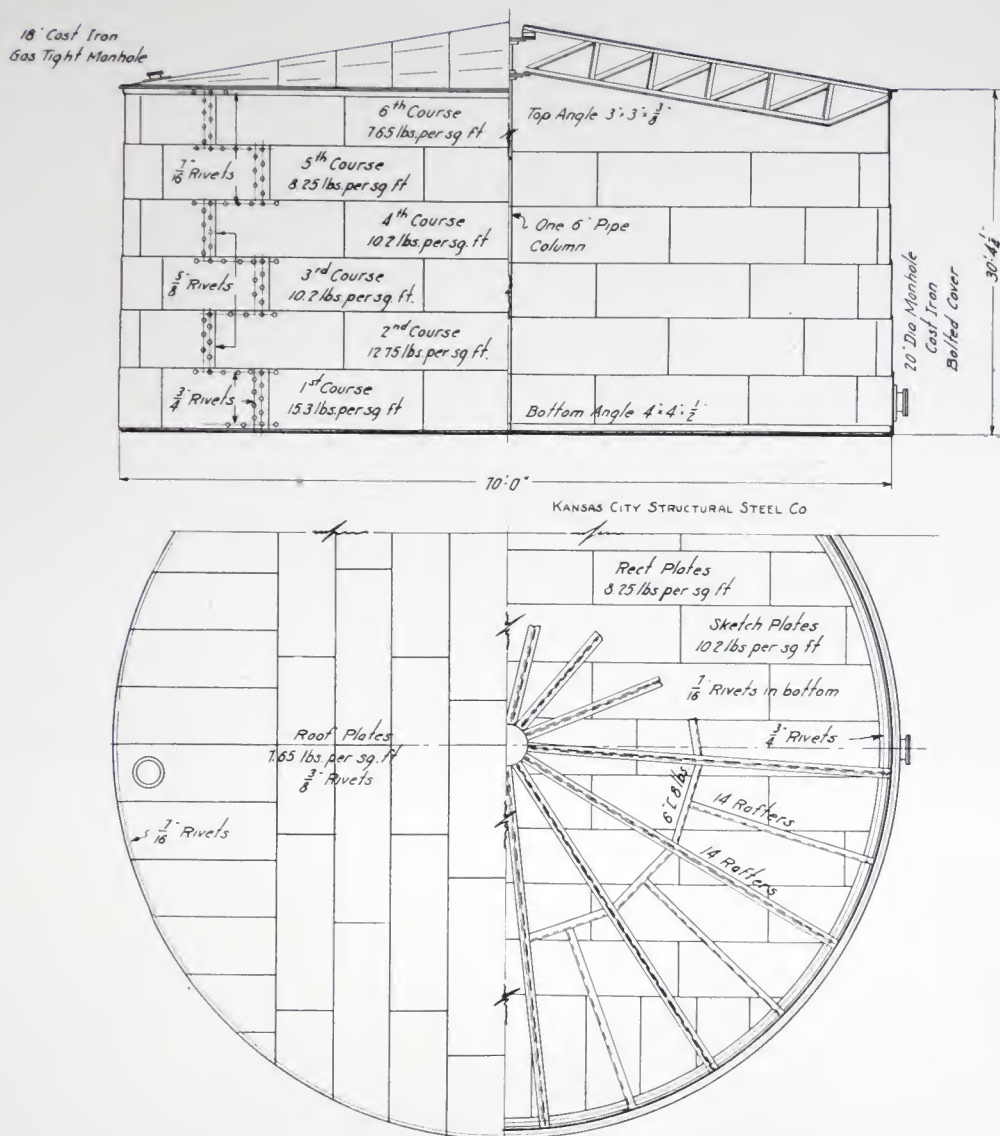 18" Cast Iron
Gas Tight Manhole
6th Course
7.65 lbs. per sq ft
Top Angle 3" × 3" × 3/8"
7/16" Rivets
5th Course
8.25 lbs. per sq ft
4th Course
10.2 lbs. per sq. ft
One 6" Pipe
Column
5/8" Rivets
3rd Course
10.2 lbs. per sq. ft.
2nd Course
12.75 lbs. per sq. ft.
3/4" Rivets
1st Course
15.3 lbs. per sq ft
Bottom Angle 4" × 4" × 1/2"
20" Dia Manhole
Cast Iron
Bolted Cover
70'-0"
KANSAS CITY STRUCTURAL STEEL CO
Rect Plates
8.25 lbs per sq ft
Sketch Plates
10.2 lbs per sq ft
7/16" Rivets in bottom
3/4" Rivets
Roof Plates
7.65 lbs. per sq. ft
3/8" Rivets
6" [ 8 lbs
14 Rafters
14 Rafters
7/16" Rivets